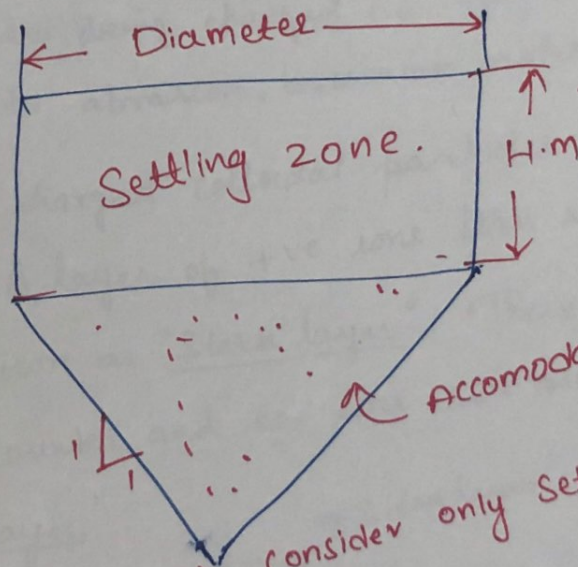 Diameter
Settling zone.
H.m
Accomod
1
1
consider only set